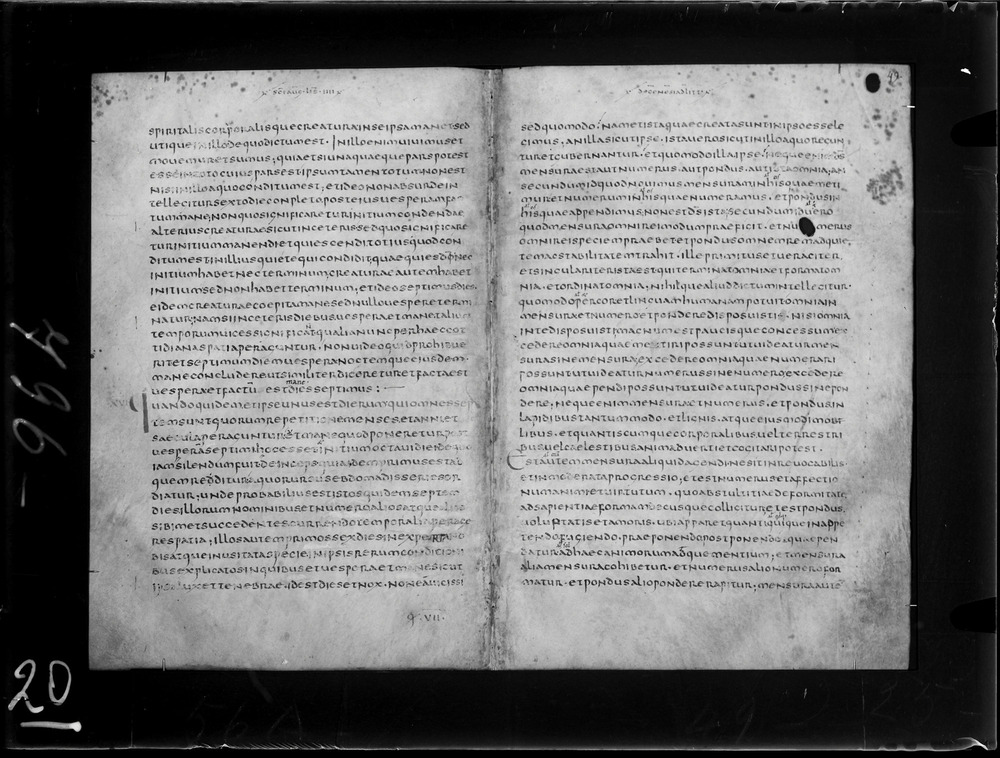 x scī aug · lib̄ · iiii x
spiritaliscorporalisquecreaturainseipsamanetsed
utiqueinillodequodictumest · Inilloenimuiuimuset
mouemuretsumus; quiaetsiunaquaequeparspotest
esseintotocuiusparsestipsumtamentotumnonest
nisiinilloaquoconditumest; etideononabsurdein
tellecitursextodiecompletoposteiusuesperamfac
tummane, nonquosignificareturinitiumcondendae
alteriuscreaturaesicutinceterissedquosignificare
turinitiummanendietquiescenditotiusquodcon
ditumestinilliusquietequiconditdiquaequiesdōnec
initiumhabetnecterminum; creaturaeautemhabet
initiumsednonhabetterminum; etideoseptimusdies
eidemcreaturaecoepitamanesednullouespereterm
natur; namsiinceterisdiebusuesperaetmanetaliū
temporumuicessignificatqualianuncperhaeccot
tidianaspatiaperaguntur · nonuideoquidprohibue
ritetseptimumdiemuesperanoctemqueeiusdem ·
maneconcluderetutsimiliterdiceretur etfactaest
uesperaetfactū mane estdiesseptimus :
xviii Quandoquidemetipseunusestdierumquiomnesseptem
temsuntquorumrepetitionemensesetanniet
saeculaperaguntur
uesperāseptimihocessetinitiumoctauidiedequo
iamsilendumfuitdeincepsquiaidemprimusestad
quemredditur aquorursusebdomadisseriesor
diatur; undeprobabiliusestistosquidemseptem
diesillorumnominibusetnumeroalios
sibimetsuccedentescurrendotemporaliaperagere
respatia; illosautemprimossexdiesinexperta
bisatqueinusitataspecieinipsisrerumcondicioni
busexplicatosinquibusetuesperaetmanesicut
ipsaluxettenebrae · idestdiesetnox · noneāuicissi
q · VII ·
x dē genē ad litt x
49
sedquomodo; nametistaquaecreatasuntinipsoessele
gimus, anillasicutipse · istauerosicutinilloaquoregun
turetgubernantur · etquomodoillaipse; nequeenim ds
mensuraestautnumerus · autpondus · autistaomnia; an
secundumidquodnouimusmensuraminhisquaemeti
muretnumeruminhisquaenumeramus · etpondusin
hisquaeappendimus, nonestdsista; secundumiduero
quodmensuraomnireimodumpraefigit · etnumerus
omnireispeciempraebetetpondusomnemremadquie
temacstabilitatemtrahit · illeprimitusetueraciter
etsingulariteristaestquiterminatomniaetformatom
nia · etordinatomnia; nihilquealiuddictumintellegitur ·
quomodopercoretlinguamhumanampotuitomniain
mensuraetnumeroetponderedisposuistis · nisiomnia
intedisposuistimagnumestpaucisqueconcessumex
cedereomniaquaemetiripossuntutuideaturmen
surasinemensura, excedereomniaquaenumerari
possuntutuideaturnumerussinenumero, excedere
omniaquaependipossuntutuideaturpondussinepon
dere; nequeenimmensuraetnumerus · etpondusin
lapidibustantummodo · etlignis · atqueeiusmodimoli
libus · etquantiscumquecorporalibusuelterrestri
busuelcaelestibusanimaduertietcogitaripotest ·
Estautemmensuraaliquidagendinesitinreuocabilis
etinmoderataprogressio; etestnumerusetaffectio
numanimietuirtutum · quoabstultitiaedeformitate
adsapientiaeformamdecusquecolligitur etestpondus ·
uoluptatisetamoris · ubiapparetquantiquiqueinappe
tendofugiendo · praeponendopostponendoquaepen
daturadhaecanimorummadquementium; etmensura
aliamensuracohibetur · etnumerusalionumerofor
matur · etpondusaliopondererapitur; mensuraaute
994-6
20